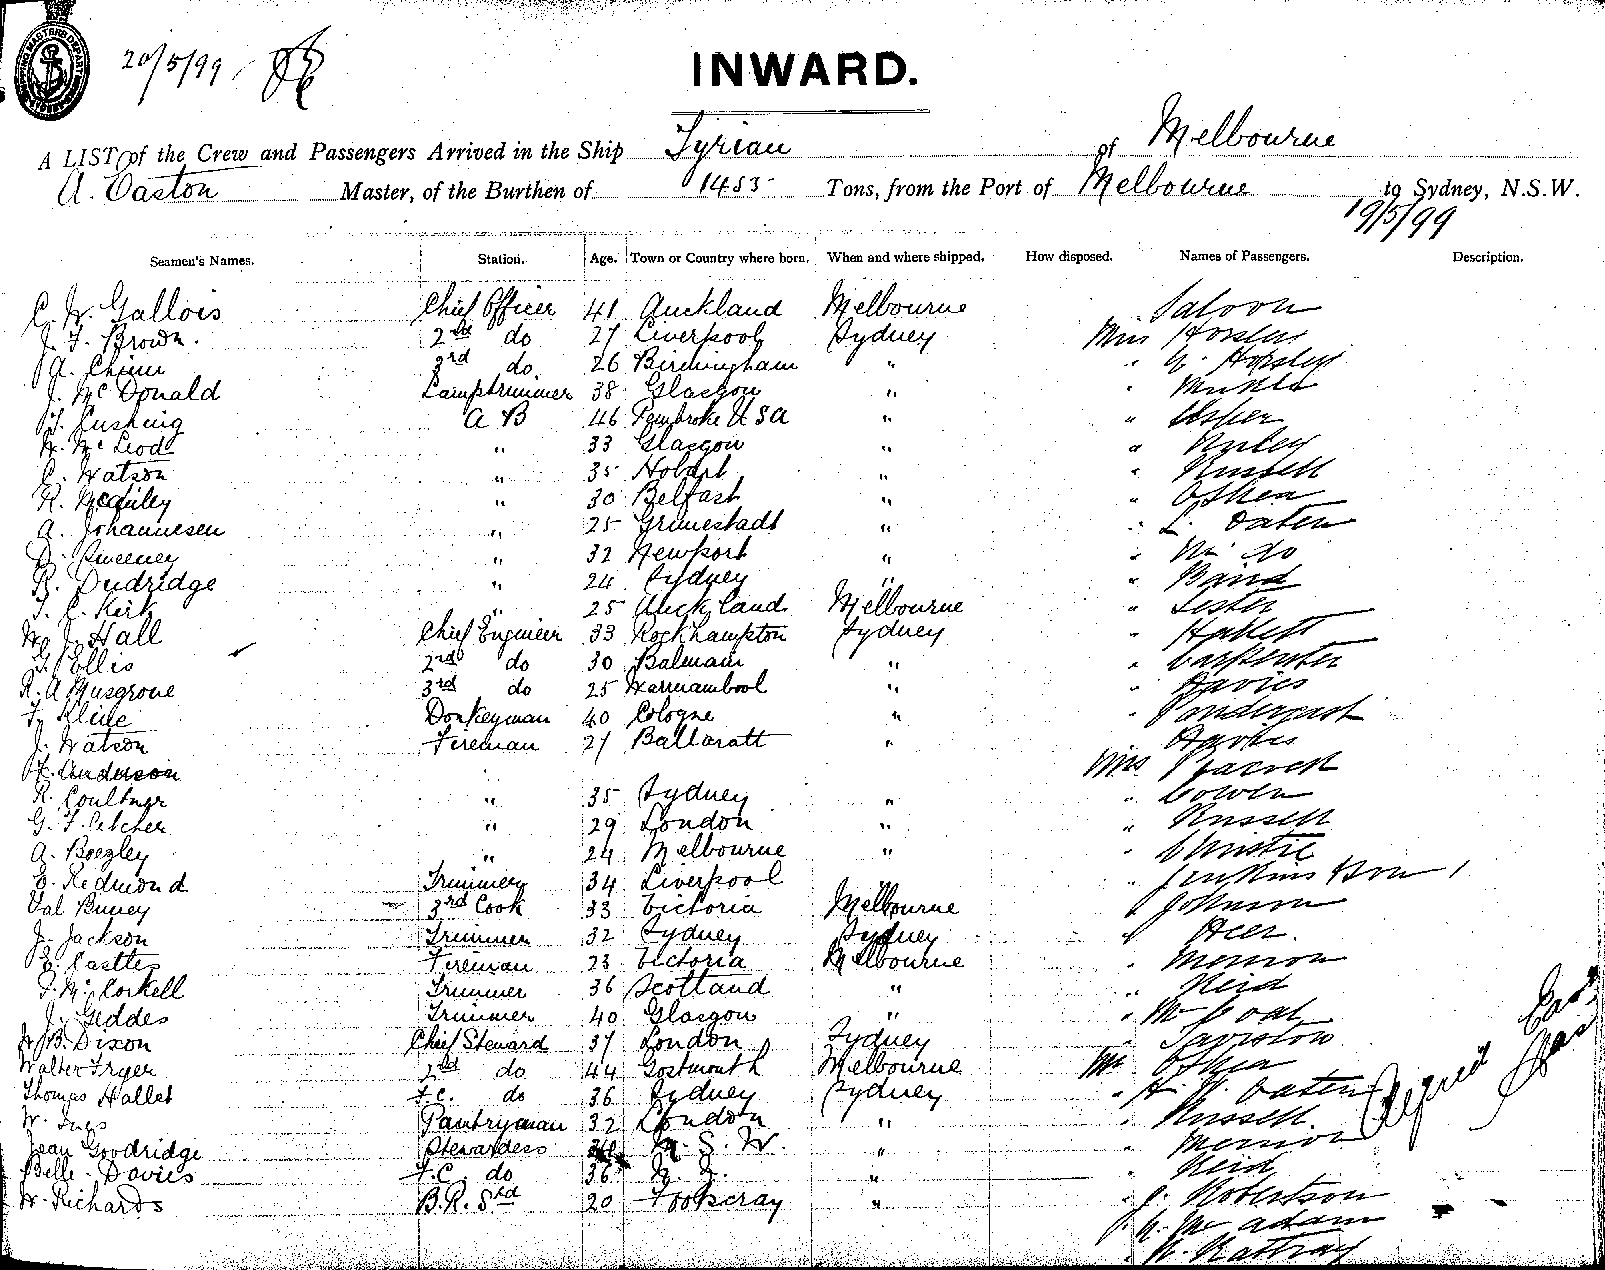 20/5/99
INWARD.
A LIST of the Crew and Passengers Arrived in the Ship Tyrian of Melbourne
A. Easton Master, of the Burthen of 1455 Tons, from the Port of Melbourne to Sydney, N.S.W.
19/5/99
Seamen's Names. Station. Age. Town or Country where born. When and where shipped. How disposed. Names of Passengers. Description.
C. W. Gallois Chief Officer 41 Auckland Melbourne Saloon
J. F. Brown. 2nd do 27 Liverpool Sydney Miss Horsley
A. 3rd do 26 Birmingham " " Horsley
J. McDonald Lamptrimmer 38 Glasgow " "
T. Cushing A B 46 Pembroke U S A " "
W. McLeod " 33 Glasgow " "
C. Watson " 35 Hobart " " Russell
R. McAuley " 30 Belfast " " O'Shea
A. Johannesen " 25 Grimestadt " " L. Oaten
D. Sweeney " 32 Newport " " do
R. Dudridge " 24 Sydney " " Baird
T. C. Kirk " 25 Auckland Melbourne " Lester
Wm J. Hall Chief Engineer 33 Rockhampton Sydney " Hallett
T. Ellis 2nd do 30 Balmain " " Carpenter
R. A Musgrove 3rd do 25 Warrnambool " " Davies
F. Kline Donkeyman 40 Cologne " " Pendergast
J. Watson Fireman 27 Ballaratt "
F. Anderson Mrs
R. Coultner " 35 Sydney " " Cowen
G. F. Pitcher " 29 London " " Russell
A. Beezley " 24 Melbourne " " Christie
E. Redmond Trimmer 34 Liverpool " " Jenkins & son 1
Val Burney 3rd Cook 33 Victoria Melbourne " Johnson
J. Jackson Trimmer 32 Sydney Sydney " Heer.
E. Fireman 23 Victoria Melbourne "
T. McCorkell Trimmer 36 Scotland " " Reid
J. Geddes Trimmer 40 Glasgow " "
W. B. Dixon Chief Steward 37 London Sydney "
Walter Fryer 2nd do 44 Melbourne Mr O'Shea
Thomas Hallet F.C. do 36 Sydney Sydney " H. W. Oaten
W. Ives Pantryman 32 London " " Russell.
Jean Goodridge Stewardess N. S. W. " "
Belle Davies F.C. do 36 N. Z. " " Reid
W. Richards B.R. Std 20 Footscray " " J. Robertson
" McAdam
" Rattray
Signed